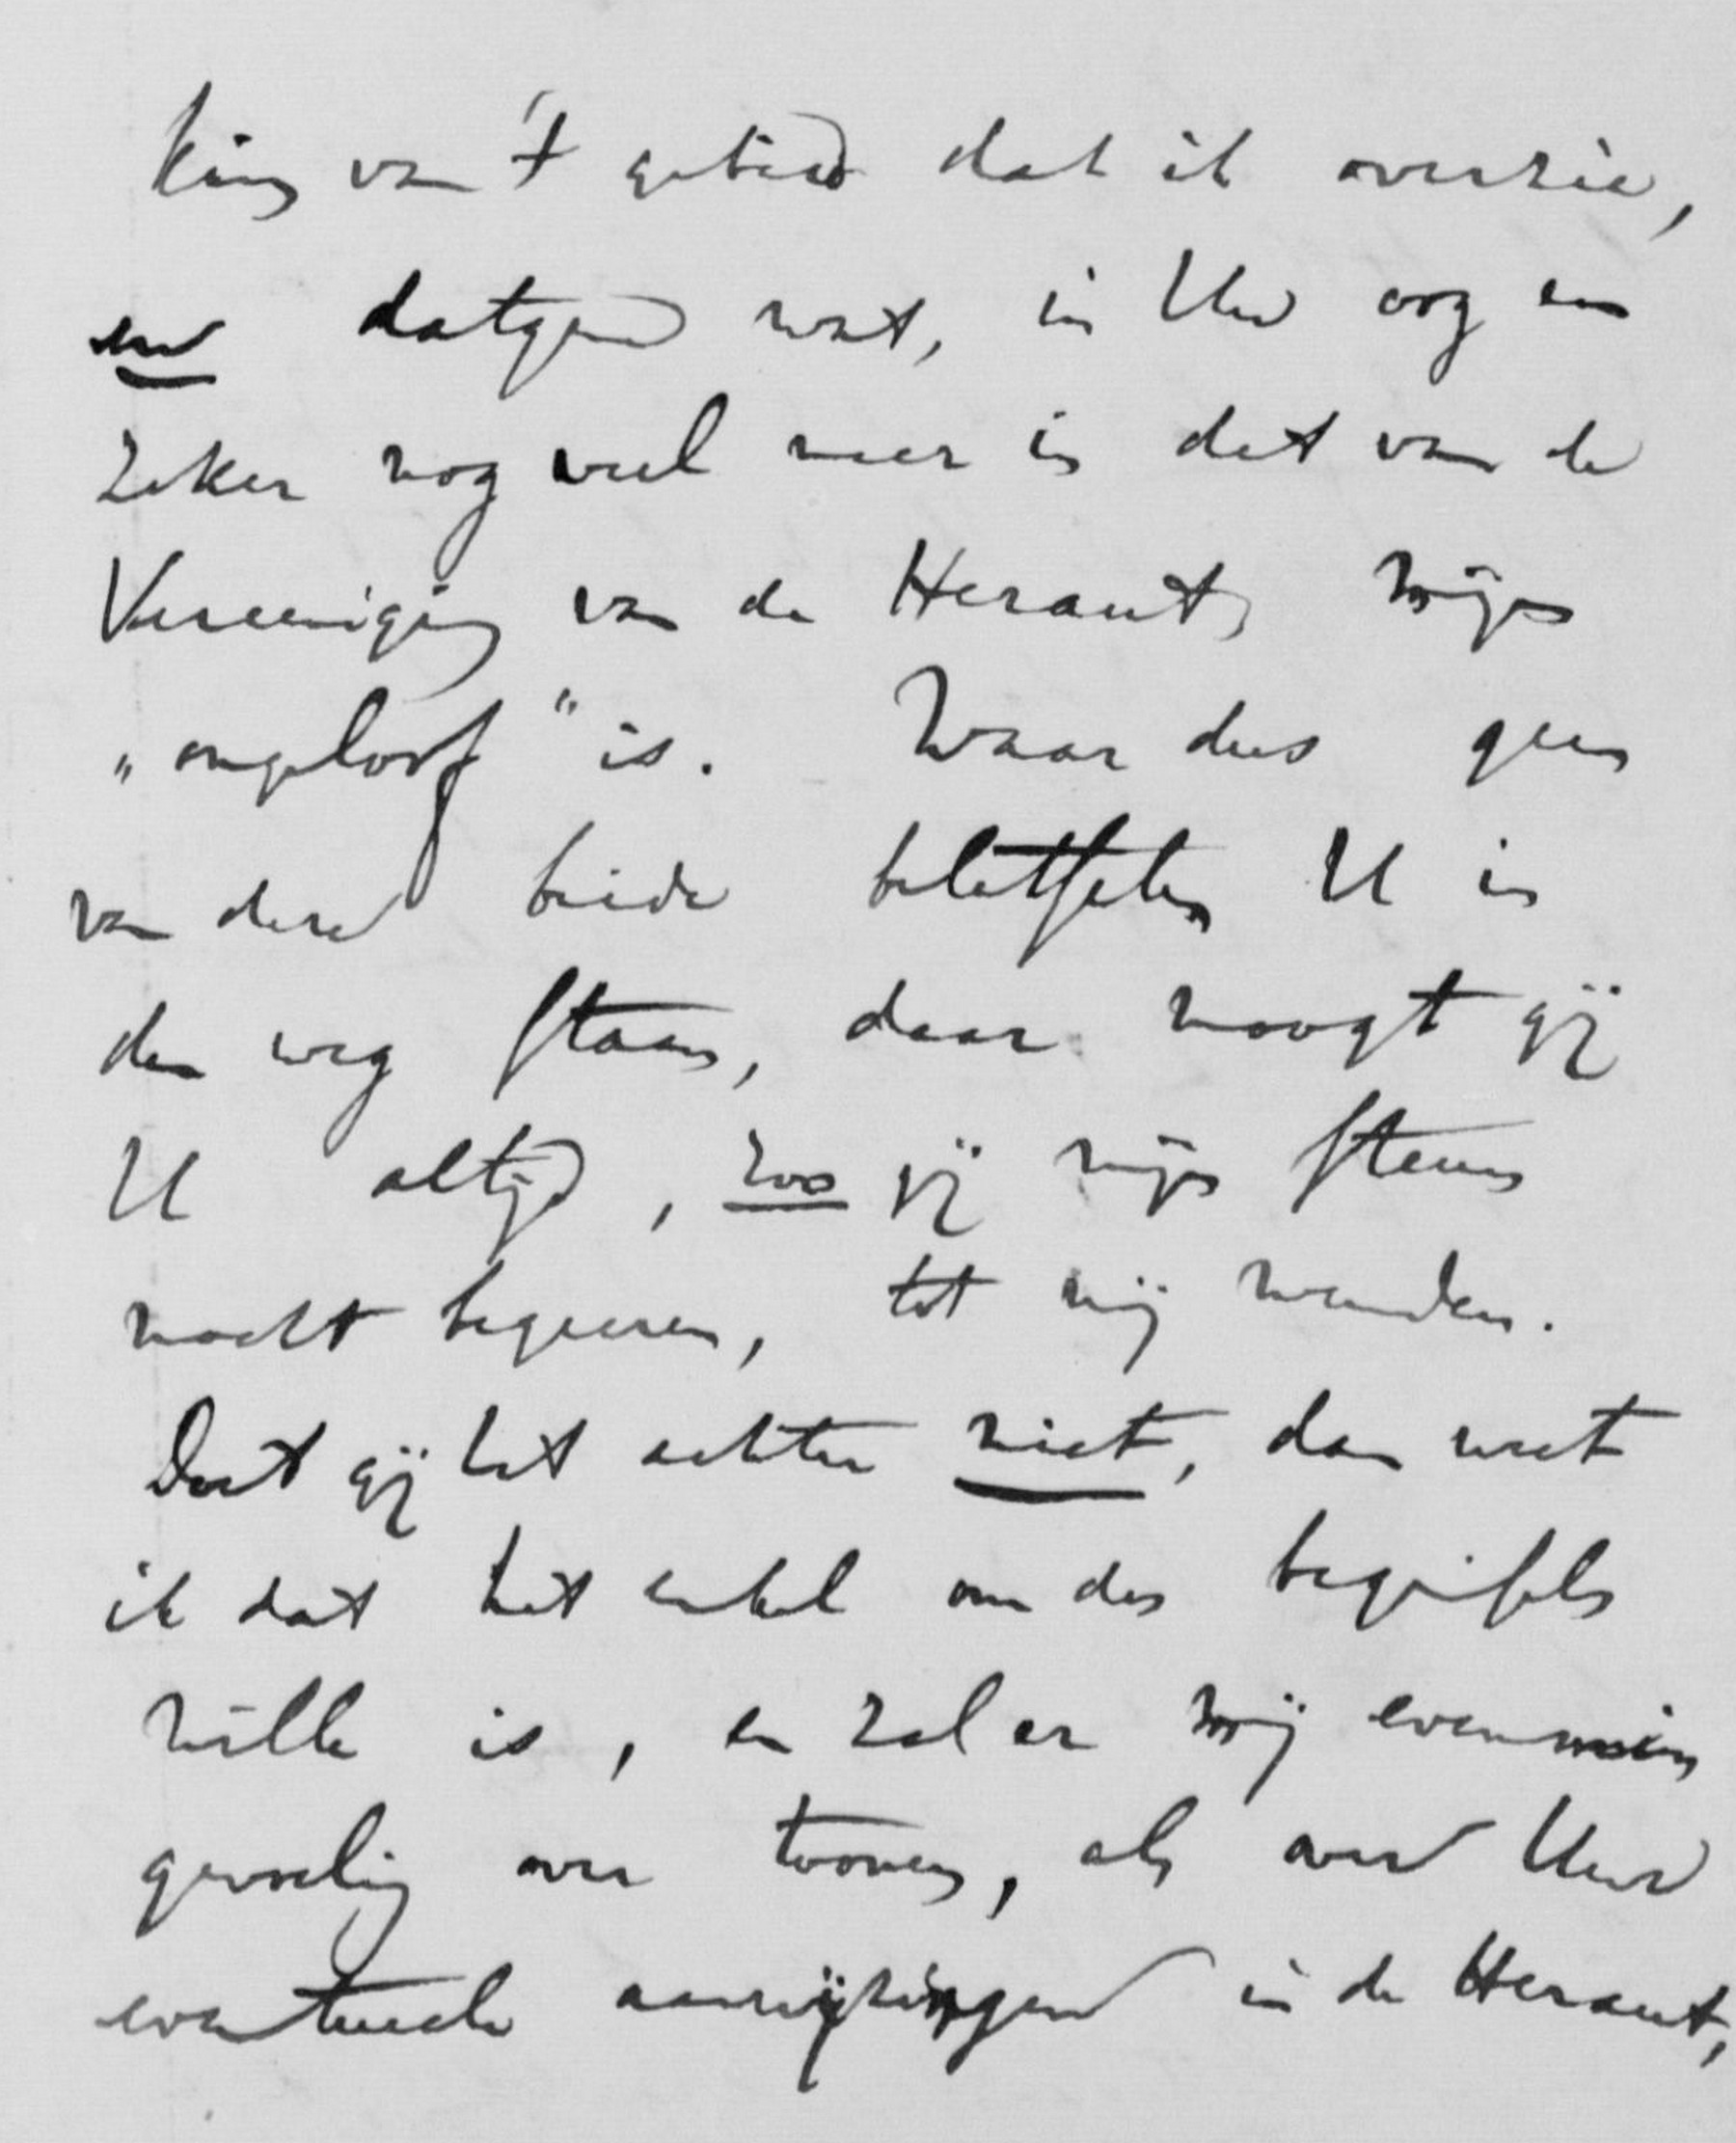 king van 't gebied dat ik overzie,
en datgene wat, in Uw oog en
zeker nog veel meer in dat van de
Vereeniging van de Heraut, mijn
„ongeloof" is. Waar dus geen
van deze beide beletselen U in
den weg staan, daar moogt gij
U altijd, zoo gij mijn steun
mocht begeeren, tot mij wenden.
Doet gij het echter niet, dan weet
ik dat het enkel om des beginsels
wille is, en zal er mij evenmin
gevoelig over toonen, als over Uwe
eventueele aanwijzingen in de Heraut,